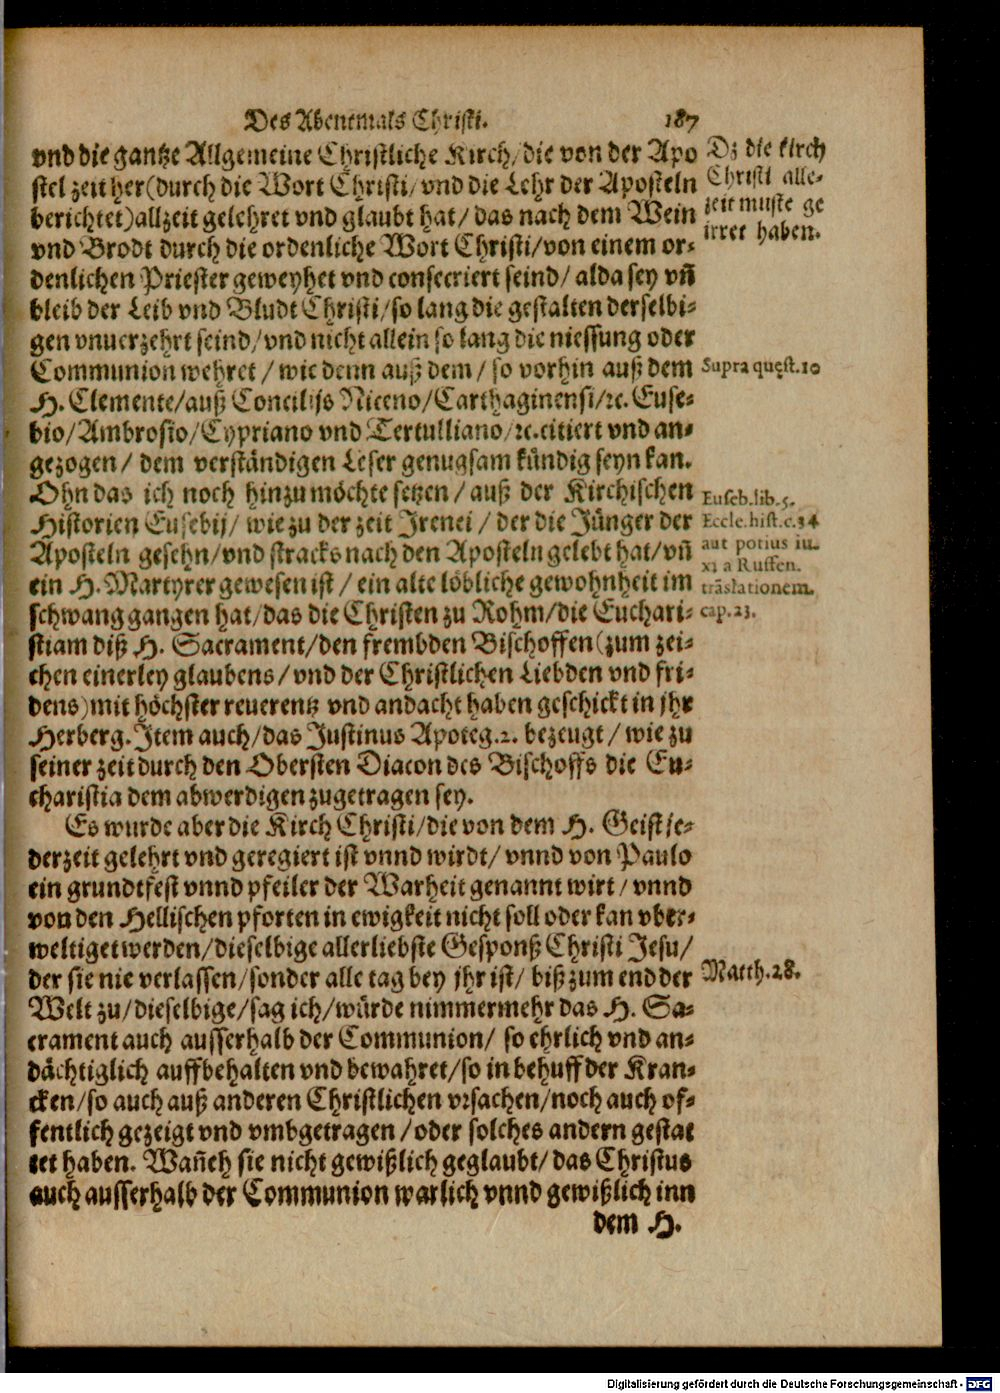 Des Abentmals Christi. 187
vnd die gantze Allgemeine Christliche Kirch/die von der Apo
stel zeit her(durch die Wort Christi/vnd die Lehr der Aposteln
berichtet)allzeit gelehret vnd glaubt hat/das nach dem Wein
vnd Brodt durch die ordenliche Wort Christi/von einem or-
denlichen Priester geweyhet vnd consecriert seind/alda sey vñ
bleib der Leib vnd Bludt Christi/so lang die gestalten derselbi-
gen vnuerzehrt seind/vnd nicht allein so lang die niessung oder
Communion wehret/wie denn auß dem/so vorhin auß dem
H. Clemente/auß Concilijs Niceno/Carthaginensi/ꝛc. Euse-
bio/Ambrosio/Cypriano vnd Tertulliano/ꝛc.citiert vnd an-
gezogen/dem verständigen Leser genugsam kündig seyn kan.
Ohn das ich noch hinzu möchte setzen/auß der Kirchischen
Historien Eusebij/wie zu der zeit Irenei/der die Jünger der
Aposteln gesehn/vnd stracks nach den Aposteln gelebt hat/vñ
ein H. Martyrer gewesen ist/ein alte löbliche gewohnheit im
schwang gangen hat/das die Christen zu Rohm/die Euchari-
stiam diß H. Sacrament/den frembden Bischoffen(zum zei-
chen einerley glaubens/vnd der Christlichen Liebden vnd fri-
dens)mit höchster reuerentz vnd andacht haben geschickt in jhr
Herberg. Item auch/das Justinus Apoteg.2. bezeugt/wie zu
seiner zeit durch den Obersten Diacon des Bischoffs die Eu-
charistia dem abwerdigen zugetragen sey.
Es wurde aber die Kirch Christi/die von dem H. Geist je-
derzeit gelehrt vnd geregiert ist vnnd wirdt/vnnd von Paulo
ein grundtfest vnnd pfeiler der Warheit genannt wirt/vnnd
von den Hellischen pforten in ewigkeit nicht soll oder kan vber-
weltiget werden/dieselbige allerliebste Gesponß Christi Jesu/
der sie nie verlassen/sonder alle tag bey jhr ist/biß zum end der
Welt zu/dieselbige/sag ich/würde nimmermehr das H. Sa-
crament auch ausserhalb der Communion/so ehrlich vnd an-
dächtiglich auffbehalten vnd bewahret/so in behuff der Kran-
cken/so auch auß anderen Christlichen vrsachen/noch auch of-
fentlich gezeigt vnd vmbgetragen/oder solches andern gestat
tet haben. Wañeh sie nicht gewißlich geglaubt/das Christus
auch ausserhalb der Communion warlich vnnd gewißlich inn
dem H.
Dz die kirch
Christi alle-
zeit muste ge
irret haben.
Supra quęst.10
Euseb.lib.5.
Eccle.hist.c.34
aut potius iu-
xta Ruffen.
trāslationem.
cap.23.
Matth.28.
Digitalisierung gefördert durch die Deutsche Forschungsgemeinschaft - DFG